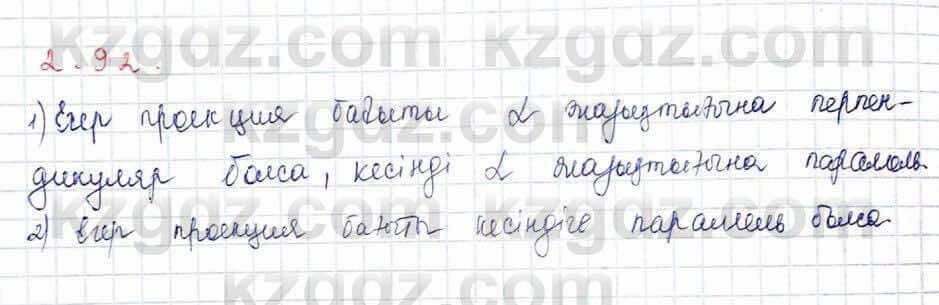 kzgdz.com kzgdz.com
2.92.
1) Егер проекция бағыты α жазықтығына перпен-
дикуляр болса, кесінді α жазықтығына параллель.
2) Егер проекция бағыты кесіндіге параллель болса